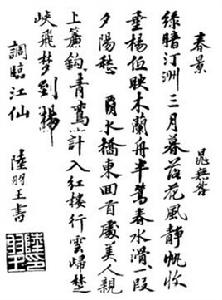 春景 晁無咎
綠暗汀洲三月暮落花風靜帆收
垂楊低映木蘭舟半篙春水滑一段
夕陽愁 灞水橋東回首處美人親
上簾鉤青鸞無計入紅樓行雲歸楚
峽飛梦到揚
調臨江仙 陸 書